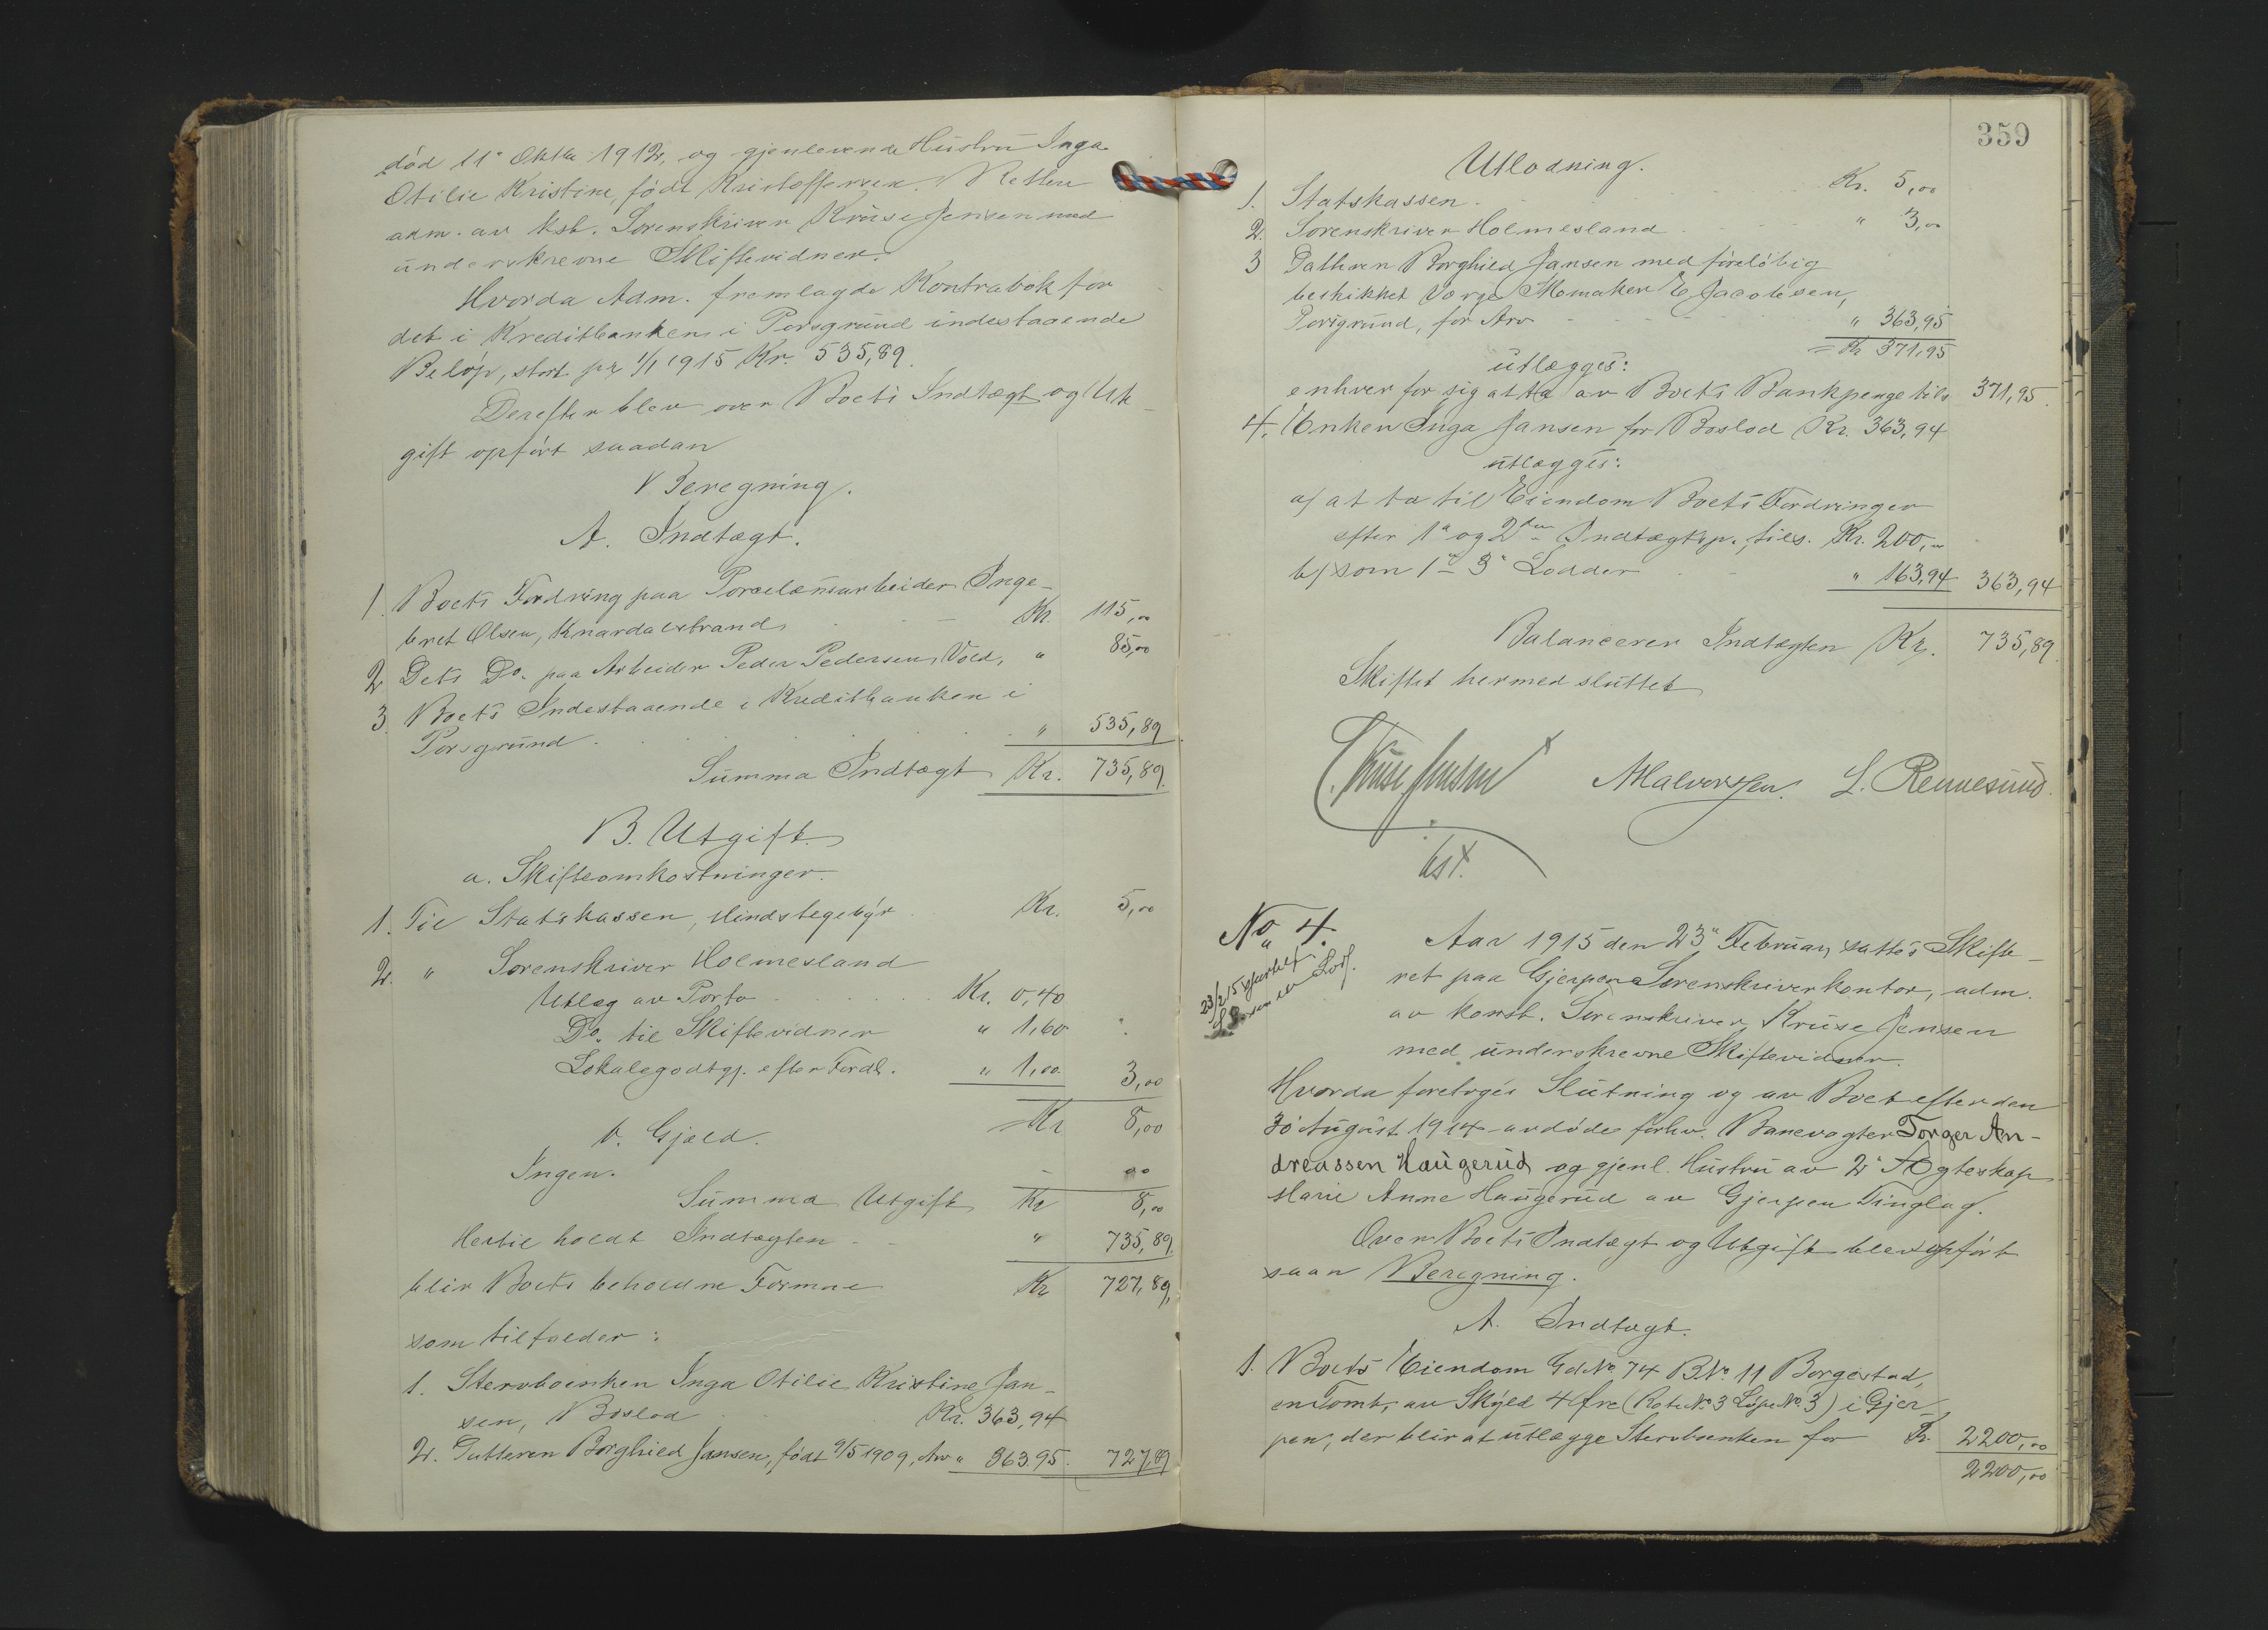 død 11' Oktbr 1912, og gjenlevende Hustru Inga
Otilie Kristine, født Kristoffersen. Retten
adm. av kst. Sorenskriver Kruse Jensen med
underskrevne Skiftevidner.
Hvorda Adm. fremlagde Kontrabok for
det i Kreditbanken i Porsgrund indestaaende
Beløp, stort pr 1/1 1915 Kr. 535,89.
Derefter blev over Boets Indtægt og Ut-
gift opført saadan
Beregning.
A. Indtægt.
1. Boets Fordring paa Porcelænsarbeider Inge-
bret Olsen, Knardalstrand Kr. 115,00
2 Dets Do. paa Arbeider Peder Pedersen, Vold, " 85,00
3. Boets Indestaaende i Kreditbanken i
Porsgrund " 535,89
Summa Indtægt Kr. 735,89.
B. Utgift
a. Skifteomkostninger.
1. Til Statskassen, Mindstegebyr Kr. 5,00
2. " Sorenskriver Holmesland
Utlæg av Porto Kr. 0,40
Do. til Skiftevidner " 1,60
Lokalegodtgj. efter Fordl. " 1,00 3,00
= Kr 8,00
b. Gjæld.
Ingen. -
Summa Utgift Kr 8,00
Hertil holdt Indtægten " 735,89
blir Boets beholdne Formue Kr 727,89,
som tilfalder:
1. Stervboenken Inga Otilie Kristine Jan-
sen, Boslod Kr. 363,94
2. Datteren Borghild Jansen, født 9/5 1909, Arv " 363.95. 727,89
359
Utlodning.
1. Statskassen Kr. 5,00
2. Sorenskriver Holmesland " 3,00
3 Datteren Borghild Jansen med foreløbig
beskikket Værge Skomaker E. Jacobsen,
Porsgrund, for Arv " 363,95
= Kr 371,95
utlægges:
enhver for sig at ta av Boets Bankpenge tils 371,95.
4. Enken Inga Jansen for Boslod Kr. 363,94
utlægges:
a/ at ta til Eiendom Boets Fordringer
efter 1ste og 2den Indtægtsp., tils. Kr. 200,00
b/ som 1-3 Lodder " 163,94 363,94
Balancerer Indtægten Kr. 735,89.
Skiftet hermed sluttet
C. Kruse Jensen
kst.
A Halvorsen. L. Rennesund.
No 4.
23/2 15
Aar 1915 den 23' Februar, sattes Skifte-
ret paa Gjerpen Sorenskriverkontor, adm.
av konst. Sorenskriver Kruse Jensen
med underskrevne Skiftevidner.
Hvorda foretoges Slutning og av Boet efter den
30 August 1914 avdøde forhv. Banevogter Torger An-
dreassen Haugerud og gjenl. Hustru av 2' Ægteskap
Marie Anne Haugerud av Gjerpen Tinglag.
Over Boets Indtægt og Utgift blev opført
saan Beregning.
A. Indtægt.
1. Boets Eiendom Gd No 74 BNo. 11 Borgestad,
en Tomt, av Skyld 4 øre (Rote No. 3 Løpe No. 3) i Gjer-
pen, der blir at utlægge Stervboenken for Kr. 2200,00
2200,00